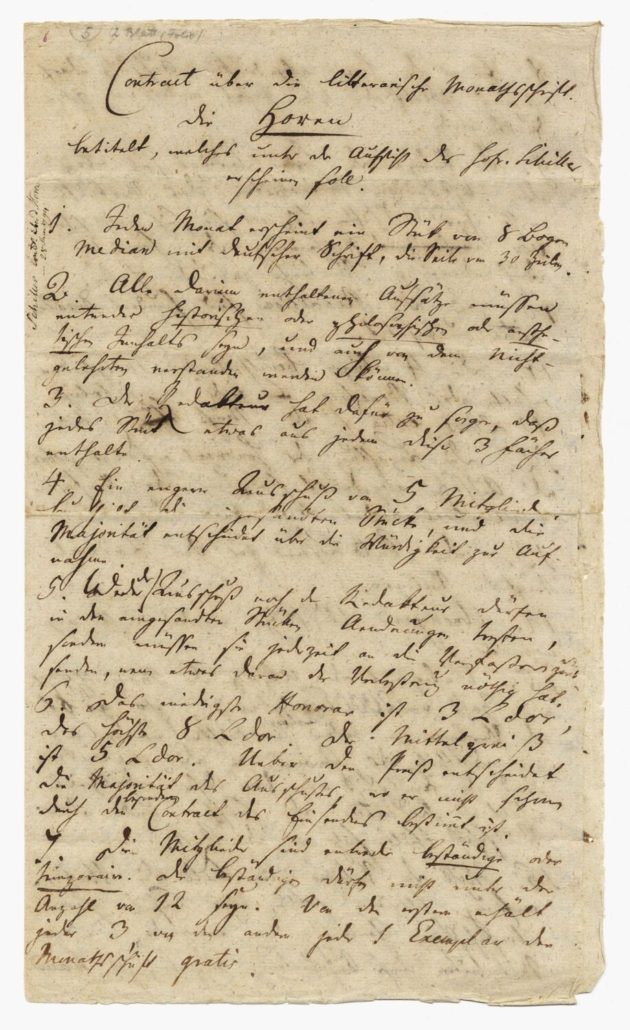 (5) 2 Blatt (Folio)
Contract über die litterarische Monathsschrift.
die Horen
betitelt, welches unter der Aufsicht des Hofr. Schiller
erscheinen soll.
1. Jeden Monat erscheint ein Stük von 8 Bogen
Median mit deutscher Schrift, die Seite von 30 Zeilen.
2. Alle darinn enthaltenen Aufsätze müssen
entweder historischen oder philosophischen od. aesthe-
tischen Innhalts seyn, und auch von dem Nicht-
gelehrten verstanden werden können.
3. Der Redakteur hat dafür zu sorgen, daß
jedes Stük etwas aus jedem dieser 3 Fächer
enthalte.
4. Ein engerer Ausschuß von 5 Mitgliedern
die eingesandten Stücke, und die
Majorität entscheidet über die Würdigkeit zur Auf-
nahme.
5 Weder der Ausschuß noch der Redakteur dürfen
in den eingesandten Stücken Aenderungen treffen,
sondern müssen sie jederzeit an die Verfasser zurük
senden, wenn etwas daran der Verbesserung nöthig hat.
6. Das niedrigste Honorar ist 3 Ldor,
das höchste 8 Ldor der Mittelpreiß
ist 5 Ldor. Ueber den Preiß entscheidet
die Majorität des Ausschusses, wo er nicht schon
durch den besondern Contract des Einsenders bestimmt ist.
7 Die Mitglieder sind entweder beständige oder
temporaire. Die beständigen dürfen nicht unter der
Anzahl von 12 seyn. Von den erstern erhält
jeder 3, von den andern jeder 1 Exemplar der
Monathsschrift gratis.